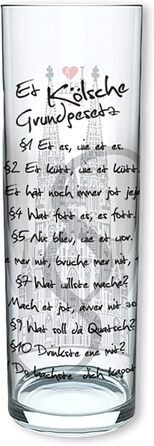 Et Kölsche
Grundgesetz
§1 Et es, wie et es.
§2. Et kütt, wie et kütt.
Et hät noch immer jot jeja
§4 Wat fott es, es fott.
§5 Nix bliev, wie et wor.
e mer nit, bruche mer nit,
§7 Wat wellste mache?
Mach et jot, ävver nit zo
§9 Wat soll dä Quatsch?
§10 Drinkste ene mit?
Do laachste dich kapott